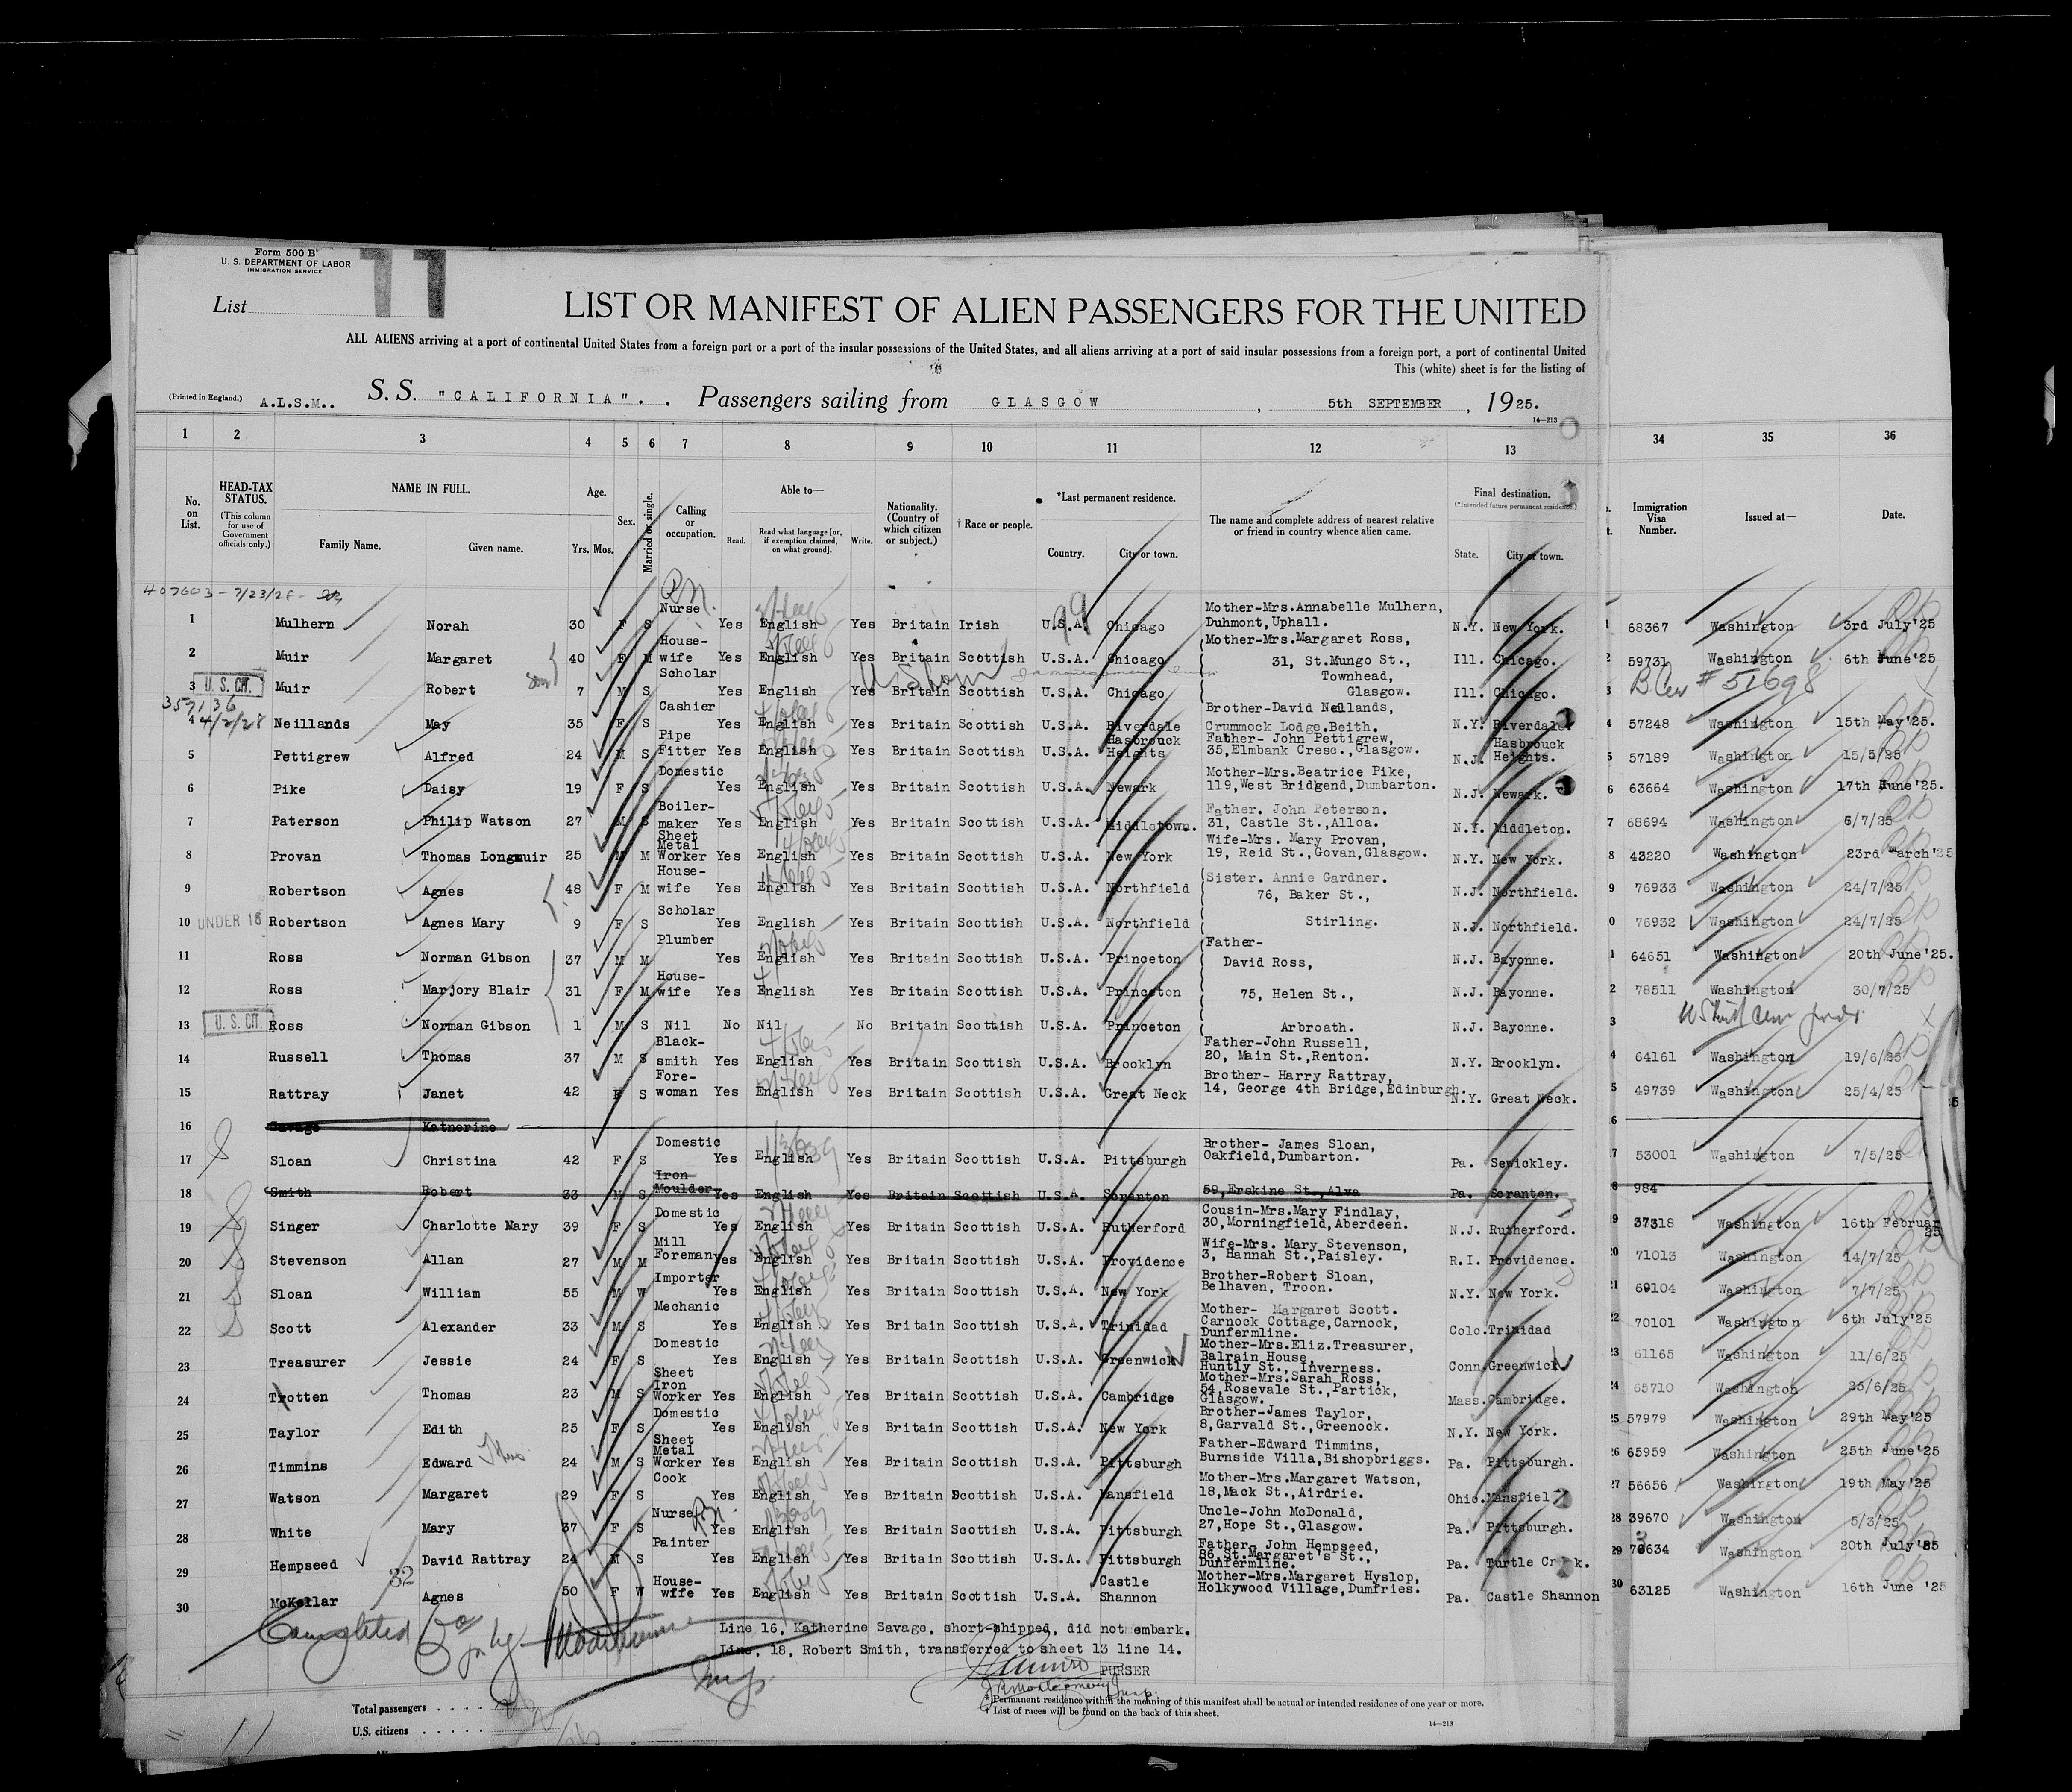 Form 500 B
U. S. DEPARTMENT OF LABOR
IMMIGRATION SERVICE
11
List
LIST OR MANIFEST OF ALIEN PASSENGERS FOR THE UNITED
ALL ALIENS arriving at a port of continental United States from a foreign port or a port of the insular possessions of the United States, and all aliens arriving at a port of said insular possessions from a foreign port, a port of continental United
This (white) sheet is for the listing of
(Printed in England.) A.L.S.M.. S. S. "CALIFORNIA". . Passengers sailing from GLASGOW , 5th SEPTEMBER , 1925.
14—213
1 2 3 4 5 6 7 8 9 10 11 12 13 34 35 36
No. on List. HEAD-TAX STATUS. (This column for use of Government officials only.) NAME IN FULL. Family Name. Given name. Age. Yrs. Mos. Sex. Married or single. Calling or occupation. Able to— Read. Read what language [or, if exemption claimed, on what ground]. Write. Nationality. (Country of which citizen or subject.) † Race or people. *Last permanent residence. Country. City or town. The name and complete address of nearest relative or friend in country whence alien came. Final destination. (*Intended future permanent residence.) State. City or town. Immigration Visa Number. Issued at— Date.
407603 - 7/23/28 -
1 Mulhern Norah 30 F S Nurse Yes English Yes Britain Irish U.S.A. Chicago Mother-Mrs.Annabelle Mulhern, Duhmont,Uphall. N.Y. New York. 1 68367 Washington 3rd July'25
2 Muir Margaret 40 F M House-wife Yes English Yes Britain Scottish U.S.A. Chicago Mother-Mrs.Margaret Ross, 31, St.Mungo St., Ill. Chicago. 2 59731 Washington 6th June'25
3 U. S. CIT. Muir Robert 7 M S Scholar Yes English Yes Britain Scottish U.S.A. Chicago Townhead, Glasgow. Ill. Chicago. 3 B.Cer # 51698
357136
4/2/28
4 Neillands May 35 F S Cashier Yes English Yes Britain Scottish U.S.A. Riverdale Brother-David Neilands, Crummock Lodge.Beith. N.Y. Riverdale 4 57248 Washington 15th May'25.
5 Pettigrew Alfred 24 M S Pipe Fitter Yes English Yes Britain Scottish U.S.A. Hasbrouck Heights Father- John Pettigrew, 35,Elmbank Cresc.,Glasgow. N.J. Hasbrouck Heights. 5 57189 Washington 15/5/25
6 Pike Daisy 19 F S Domestic Yes English Yes Britain Scottish U.S.A. Newark Mother-Mrs.Beatrice Pike, 119,West Bridgend,Dumbarton. N.J. Newark. 6 63664 Washington 17th June'25.
7 Paterson Philip Watson 27 M S Boiler-maker Yes English Yes Britain Scottish U.S.A. Middletown. Father. John Peterson. 31, Castle St.,Alloa. N.Y. Middleton. 7 68694 Washington 6/7/25
8 Provan Thomas Longmuir 25 M M Sheet Metal Worker Yes English Yes Britain Scottish U.S.A. New York Wife-Mrs. Mary Provan, 19, Reid St.,Govan,Glasgow. N.Y. New York. 8 43220 Washington 23rd March'25
9 Robertson Agnes 48 F M House-wife Yes English Yes Britain Scottish U.S.A. Northfield Sister. Annie Gardner. 76, Baker St., N.J. Northfield. 9 76933 Washington 24/7/25
10 UNDER 16 Robertson Agnes Mary 9 F S Scholar Yes English Yes Britain Scottish U.S.A. Northfield Stirling. N.J. Northfield. 0 76932 Washington 24/7/25
11 Ross Norman Gibson 37 M M Plumber Yes English Yes Britain Scottish U.S.A. Princeton Father- David Ross, N.J. Bayonne. 1 64651 Washington 20th June'25.
12 Ross Marjory Blair 31 F M House-wife Yes English Yes Britain Scottish U.S.A. Princeton 75, Helen St., N.J. Bayonne. 2 78511 Washington 30/7/25
13 U. S. CIT. Ross Norman Gibson 1 M S Nil No Nil No Britain Scottish U.S.A. Princeton Arbroath. N.J. Bayonne. 3
14 Russell Thomas 37 M S Black-smith Yes English Yes Britain Scottish U.S.A. Brooklyn Father-John Russell, 20, Main St.,Renton. N.Y. Brooklyn. 4 64161 Washington 19/6/25
15 Rattray Janet 42 F S Fore-woman Yes English Yes Britain Scottish U.S.A. Great Neck Brother- Harry Rattray, 14, George 4th Bridge,Edinburgh. N.Y. Great Neck. 5 49739 Washington 25/4/25
16 Savage Katherine 6
17 Sloan Christina 42 F S Domestic Yes English Yes Britain Scottish U.S.A. Pittsburgh Brother- James Sloan, Oakfield,Dumbarton. Pa. Sewickley. 7 53001 Washington 7/5/25
18 Smith Robert 33 M S Iron Moulder Yes English Yes Britain Scottish U.S.A. Scranton 59,Erskine St.,Alva Pa. Scranton. 8 984
19 Singer Charlotte Mary 39 F S Domestic Yes English Yes Britain Scottish U.S.A. Rutherford Cousin-Mrs.Mary Findlay, 30,Morningfield,Aberdeen. N.J. Rutherford. 9 37318 Washington 16th Februar 25
20 Stevenson Allan 27 M M Mill Foreman Yes English Yes Britain Scottish U.S.A. Providence Wife-Mrs. Mary Stevenson, 3, Hannah St.,Paisley. R.I. Providence. 20 71013 Washington 14/7/25
21 Sloan William 55 M W Importer Yes English Yes Britain Scottish U.S.A. New York Brother-Robert Sloan, Belhaven, Troon. N.Y. New York. 21 69104 Washington 7/7/25
22 Scott Alexander 33 M S Mechanic Yes English Yes Britain Scottish U.S.A. Trinidad Mother- Margaret Scott. Carnock Cottage,Carnock, Dunfermline. Colo. Trinidad 22 70101 Washington 6th July'25
23 Treasurer Jessie 24 F S Domestic Yes English Yes Britain Scottish U.S.A. Greenwick Mother-Mrs.Eliz.Treasurer, Balrain House, Huntly St., Inverness. Conn. Greenwick 23 61165 Washington 11/6/25
24 Trotten Thomas 23 M S Sheet Iron Worker Yes English Yes Britain Scottish U.S.A. Cambridge Mother-Mrs.Sarah Ross, 54,Rosevale St.,Partick, Glasgow. Mass. Cambridge. 24 65710 Washington 25/6/25
25 Taylor Edith 25 F S Domestic Yes English Yes Britain Scottish U.S.A. New York Brother-James Taylor, 8,Garvald St.,Greenock. N.Y. New York. 25 57979 Washington 29th May'25
26 Timmins Edward 24 M S Sheet Metal Worker Yes English Yes Britain Scottish U.S.A. Pittsburgh Father-Edward Timmins, Burnside Villa,Bishopbriggs. Pa. Pittsburgh. 26 65959 Washington 25th June'25
27 Watson Margaret 29 F S Cook Yes English Yes Britain Scottish U.S.A. Mansfield Mother-Mrs.Margaret Watson, 18,Mack St.,Airdrie. Ohio. Mansfiel 27 56656 Washington 19th May'25
28 White Mary 37 F S Nurse Yes English Yes Britain Scottish U.S.A. Pittsburgh Uncle-John McDonald, 27,Hope St.,Glasgow. Pa. Pittsburgh. 28 39670 Washington 5/3/25
29 Hempseed David Rattray 24 M S Painter Yes English Yes Britain Scottish U.S.A. Pittsburgh Father- John Hempseed, 86,St.Margaret's St., Dunfermline. Pa. Turtle Creek. 29 73634 Washington 20th July'25
32
30 McKellar Agnes 50 F W House-wife Yes English Yes Britain Scottish U.S.A. Castle Shannon Mother-Mrs.Margaret Hyslop, Holkywood Village,Dumfries. Pa. Castle Shannon 30 63125 Washington 16th June '25
Completed
Line 16, Katherine Savage, short-shipped, did not embark.
Line, 18, Robert Smith, transferred to sheet 13 line 14.
PURSER
* Permanent residence within the meaning of this manifest shall be actual or intended residence of one year or more.
† List of races will be found on the back of this sheet.
14—213
Total passengers
U.S. citizens
11